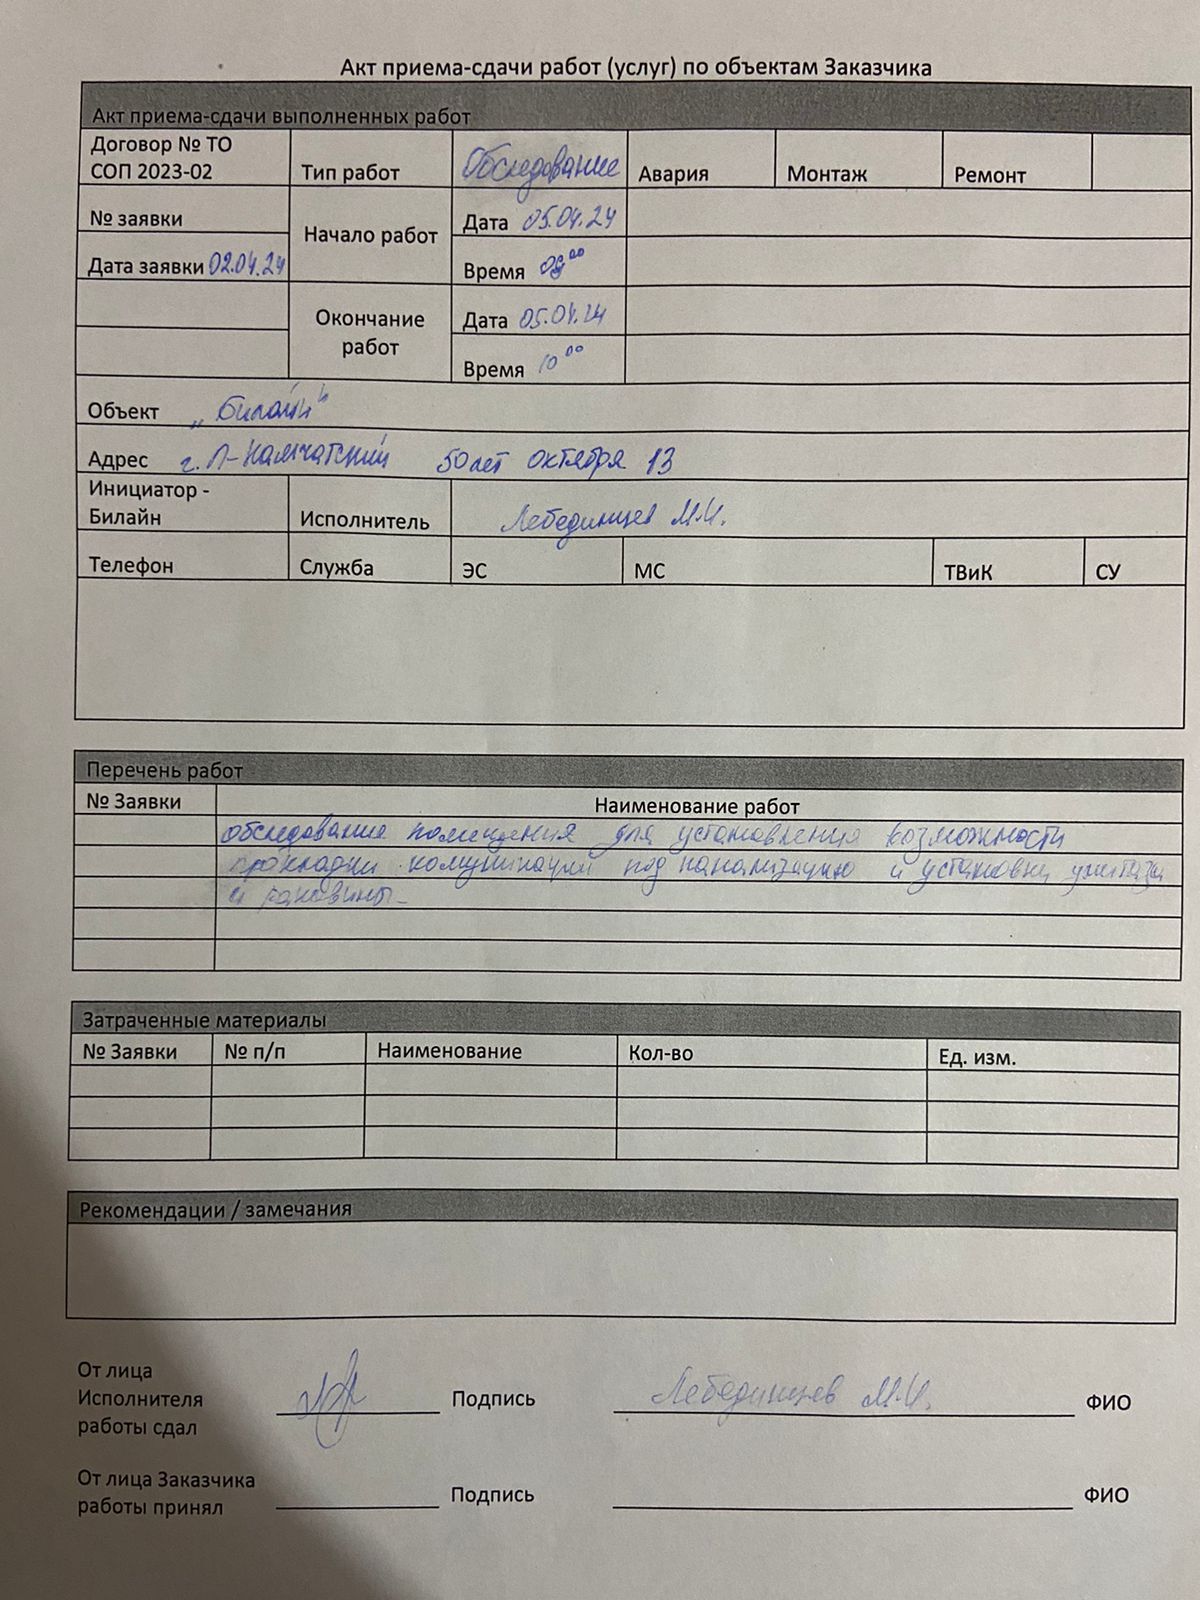 Акт приема-сдачи работ (услуг) по объектам Заказчика
Акт приема-сдачи выполненных работ
Договор № ТО
СОП 2023-02
Тип работ
Обследование
Авария
Монтаж
Ремонт
№ заявки
Начало работ
Дата 05.04.24
Дата заявки 02.04.24
Время 09⁰⁰
Окончание
работ
Дата 05.04.24
Время 10⁰⁰
Объект „Билайн"
Адрес г. П-Камчатский 50 лет октября 13
Инициатор -
Билайн
Исполнитель
Лебединцев М.И.
Телефон
Служба
ЭС
МС
ТВиК
СУ
Перечень работ
№ Заявки
Наименование работ
обследование помещения для установления возможности
прокладки комуникаций под канализацию и установки унитаза
и раковины.
Затраченные материалы
№ Заявки
№ п/п
Наименование
Кол-во
Ед. изм.
Рекомендации / замечания
От лица
Исполнителя
работы сдал
Подпись
Лебединцев М.И.
ФИО
От лица Заказчика
работы принял
Подпись
ФИО